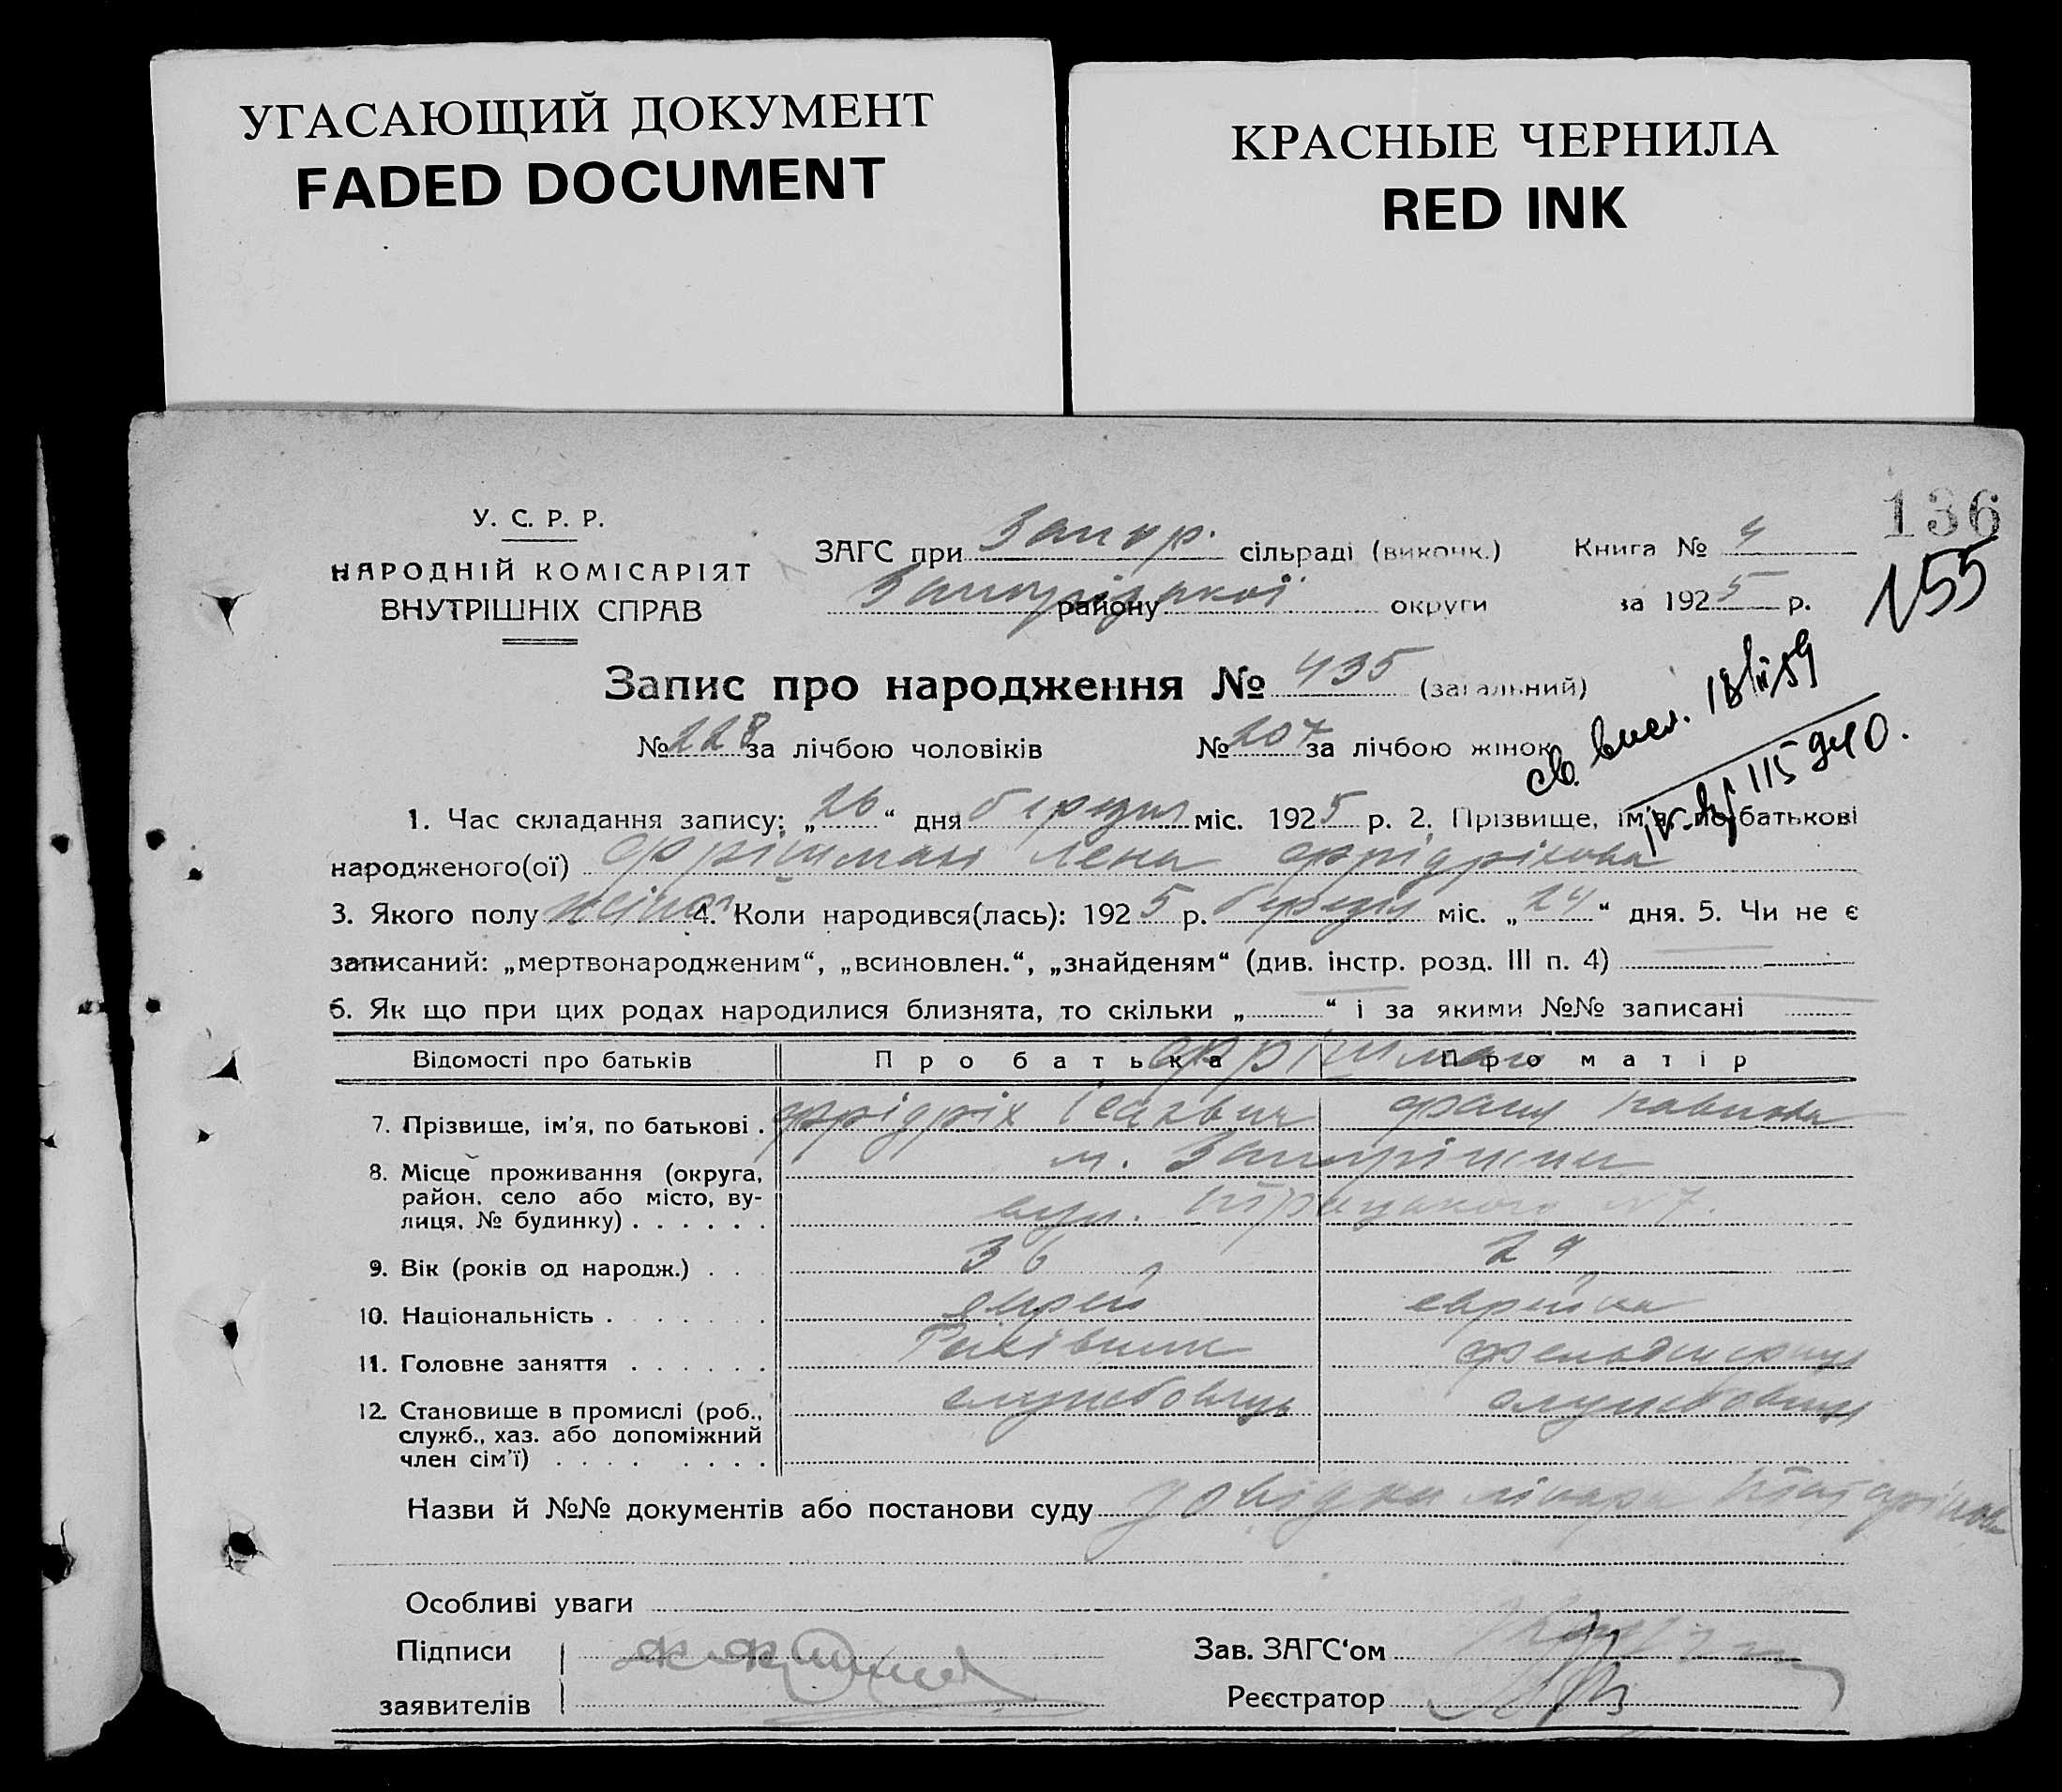 УГАСАЮЩИЙ ДОКУМЕНТ
FADED DOCUMENT
КРАСНЫЕ ЧЕРНИЛА
RED INK
136
155
У. С. Р. Р.
НАРОДНІЙ КОМІСАРІЯТ
ВНУТРІШНІХ СПРАВ
ЗАГС при Запор. сільраді (виконк.) Книга № 4
Запорізької району округи за 1925 р.
Запис про народження № 435 (загальний)
№ 228 за лічбою чоловіків № 207 за лічбою жінок
св. 18/II 59
115
1. Час складання запису: „26“ дня березня міс. 1925 р. 2. Прізвище, ім'я, по батькові
народженого(ої) Фрішман Лена Фрідріхова
3. Якого полу жіноч 4. Коли народився(лась): 1925 р. березня міс. „24“ дня. 5. Чи не є
записаний: „мертвонародженим“, „всиновлен.“, „знайденям“ (див. інстр. розд. III п. 4)
6. Як що при цих родах народилися близнята, то скільки „ “ і за якими №№ записані
Відомості про батьків Про батька Про матір
Фрішман
7. Прізвище, ім'я, по батькові . Фрідріх Ісакович Фаня Павловна
8. Місце проживання (округа, м. Запоріжжя
район, село або місто, ву-
лиця, № будинку) . . . . . . вул. Троцького № 7.
9. Вік (років од народж.) . . 36 29
10. Національність . . . . . . . еврей еврейка
11. Головне заняття . . . . . . фельдшериця
12. Становище в промислі (роб., службовець службовиця
служб., хаз. або допоміжний
член сім'ї) . . . . . . . .
Назви й №№ документів або постанови суду довідка лікаря
Особливі уваги
Підписи
заявителів
Зав. ЗАГС'ом
Реєстратор